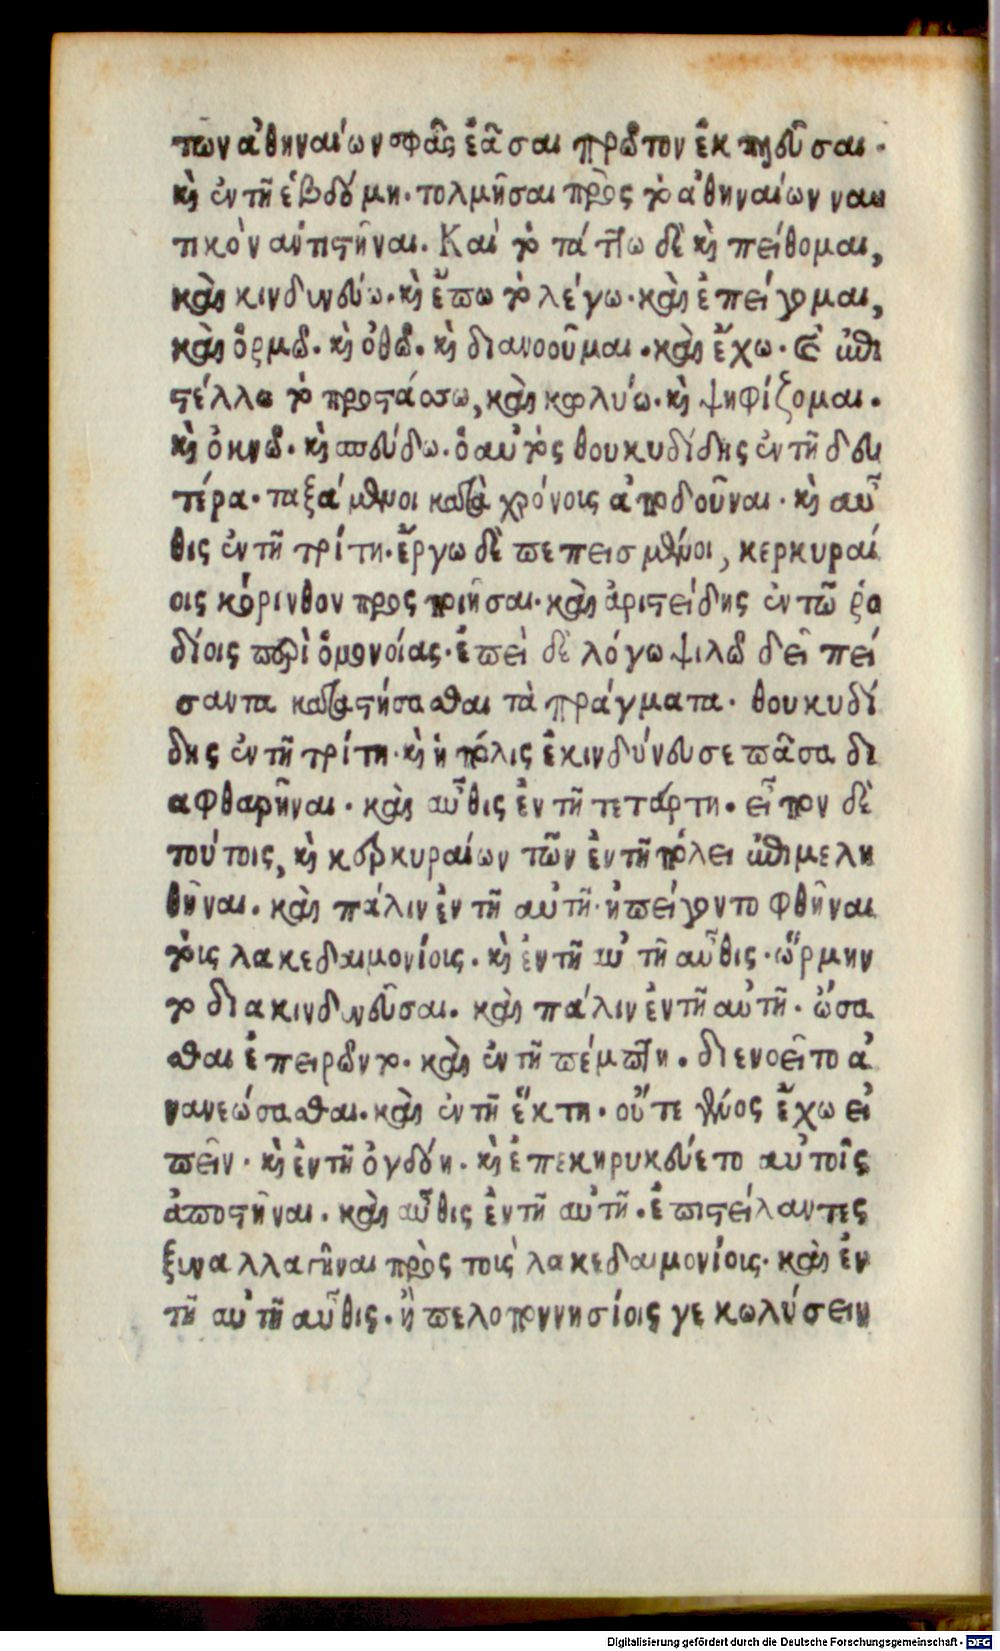 τῶν ἀθηναίων σφᾶς ἐᾶσαι πρῶτον ἐκπλεῦσαι·
καὶ ἐν τῇ ἑβδόμῃ· τολμῆσαι πρὸς τὸ ἀθηναίων ναυ
τικὸν ἀντιστῆναι. Καὶ τὸ τάττω δὲ καὶ πείθομαι,
καὶ κινδυνεύω· καὶ ἔπω τὸ λέγω· καὶ ἐπείγομαι,
καὶ ὁρμῶ· καὶ ὠθῶ· καὶ διανοοῦμαι· καὶ ἔχω· καὶ ἐπι
στέλλω τὸ προστάσσω, καὶ κωλύω· καὶ ψηφίζομαι·
καὶ ὀκνῶ· καὶ σπεύδω. ὁ αὐτὸς θουκυδίδης ἐν τῇ δευ
τέρα· ταξάμενοι κατὰ χρόνοις ἀποδοῦναι· καὶ αὖ
θις ἐν τῇ τρίτῃ· ἔργω δὲ πεπεισμένοι, κερκυραί
οις κόρινθον προσποιῆσαι· καὶ ἀριστείδης ἐν τῶ ῥο
δίοις περὶ ὁμονοίας· ἐπεὶ δὲ λόγω ψιλῶ δεῖ πεί
σαντα καταστήσασθαι τὰ πράγματα· θουκυδί
δης ἐν τῇ τρίτῃ· καὶ ἡ πόλις ἐκινδύνευσε πᾶσα δι
αφθαρῆναι· καὶ αὖθις ἐν τῇ τετάρτῃ· εἶπον δὲ
τούτοις, καὶ κερκυραίων τῶν ἐν τῇ πόλει ἐπιμελη
θῆναι· καὶ πάλιν ἐν τῇ αὐτῇ· ἠπείγοντο φθῆναι
τοῖς λακεδαιμονίοις· καὶ ἐν τῇ αὐτῇ αὖθις· ὥρμην
το διακινδυνεῦσαι· καὶ πάλιν ἐν τῇ αὐτῇ· ὤσα
σθαι ἐπειρῶντο· καὶ ἐν τῇ πέμπτῃ· διενοεῖτο ἀ
νανεώσασθαι· καὶ ἐν τῇ ἕκτῃ· οὔτε γένος ἔχω εἰ
πεῖν· καὶ ἐν τῇ ὀγδόῃ· καὶ ἐπεκηρυκεύετο αὐτοῖς
ἀποστῆναι· καὶ αὖθις ἐν τῇ αὐτῇ· ἐπιστείλαντες
ξυναλλαγῆναι πρὸς τοῖς λακεδαιμονίοις· καὶ ἐν
τῇ αὐτῇ αὖθις· ἢ πελοποννησίοις γε κωλύσειν
Digitalisierung gefördert durch die Deutsche Forschungsgemeinschaft - DFG